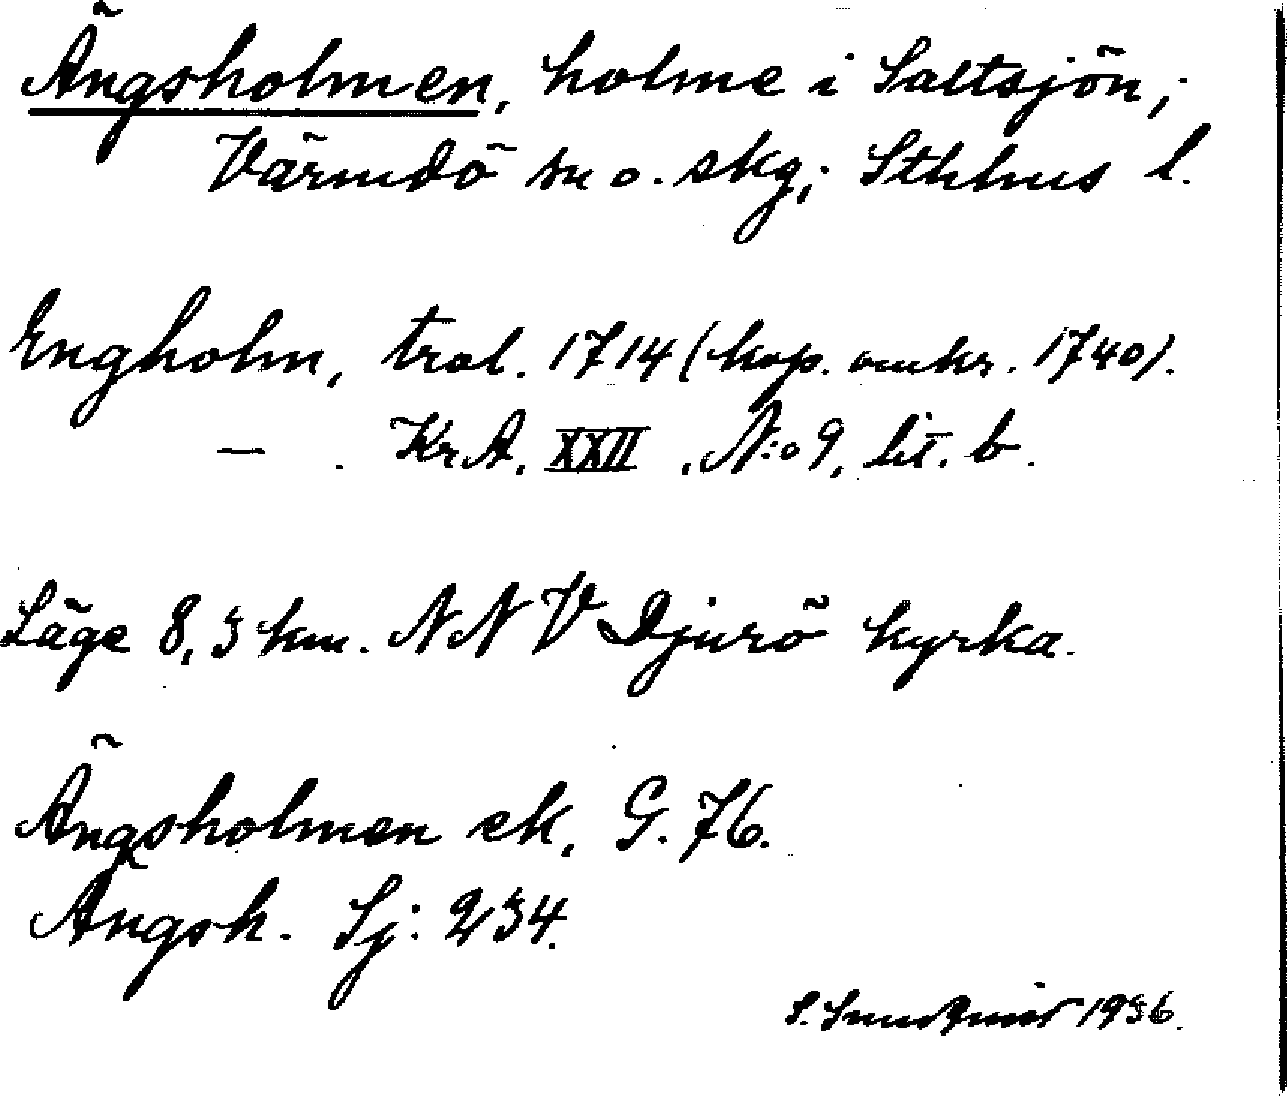 Ängsholmen, holme i Saltsjön;
Värmdö sn o. skg; Sthlms l.
Engholm, tral. 1714 (kop. omkr. 1740).
— . KrA. XXII . N:o 9, lit. b.
Läge 8,3 km. NNV Djurö kyrka.
Ängsholmen ek, G. 76.
Ängsh. Sj: 234.
S. 1936.